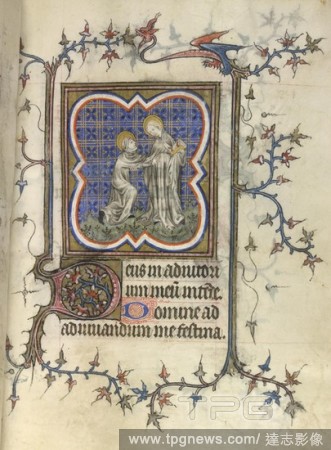 Deus in adiutori
um meū intēde.
Domine ad
adiuuandum me festina.
TPG
www.tpgnews.com/ 達志影像